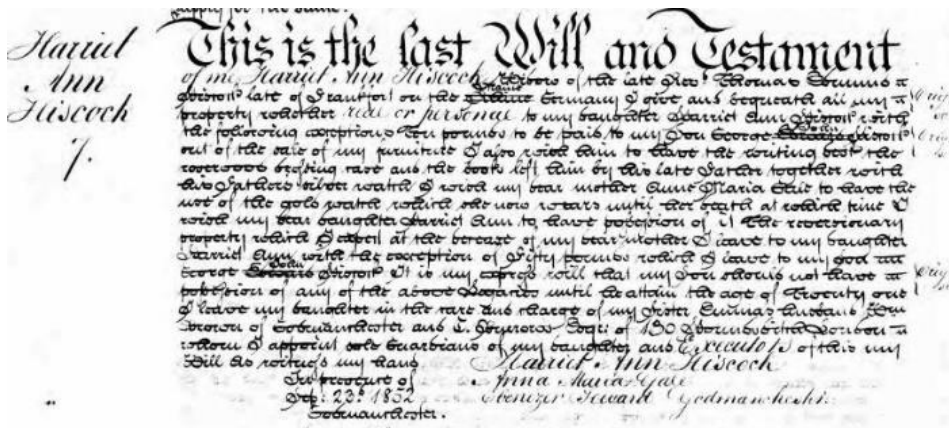 supply for the same.
Harriet Ann Hiscock 7.
This is the last Will and Testament
of me Harriet Ann Hiscock Widow of the late Thomas
Hiscock late of Frankfort on the Maine Germany I give and bequeath all my
property whether real or personal to my daughter Harriet Ann Hiscock with
the following exceptions Ten pounds to be paid to my Son George John Hiscock
out of the sale of my furniture I also wish him to have the writing desk the
rosewood dressing case and the book left him by his late Father together with
his Fathers silver watch I wish my dear mother Anne Maria to have the
use of the gold watch which she now wears until her death at which time I
wish my dear daughter Harriet Ann to have possession of it The reversionary
property which I expect at the decease of my dear mother I leave to my daughter
Harriet Ann with the exception of Fifty pounds which I leave to my
George John Hiscock It is my express will that my Son should not have
possession of any of the above Legacies until he attain the age of Twenty one
I leave my daughter in the care and charge of my Sister Emmas husband
of Godmanchester and C. Esqr. of 150 London
whom I appoint sole Guardians of my daughter and Executors of this my
Will As witness my hand Harriet Ann Hiscock
In presence of Anna Maria Gale
Sep. 23d. 1852 Ebenezer Seward Godmanchester
Godmanchester.